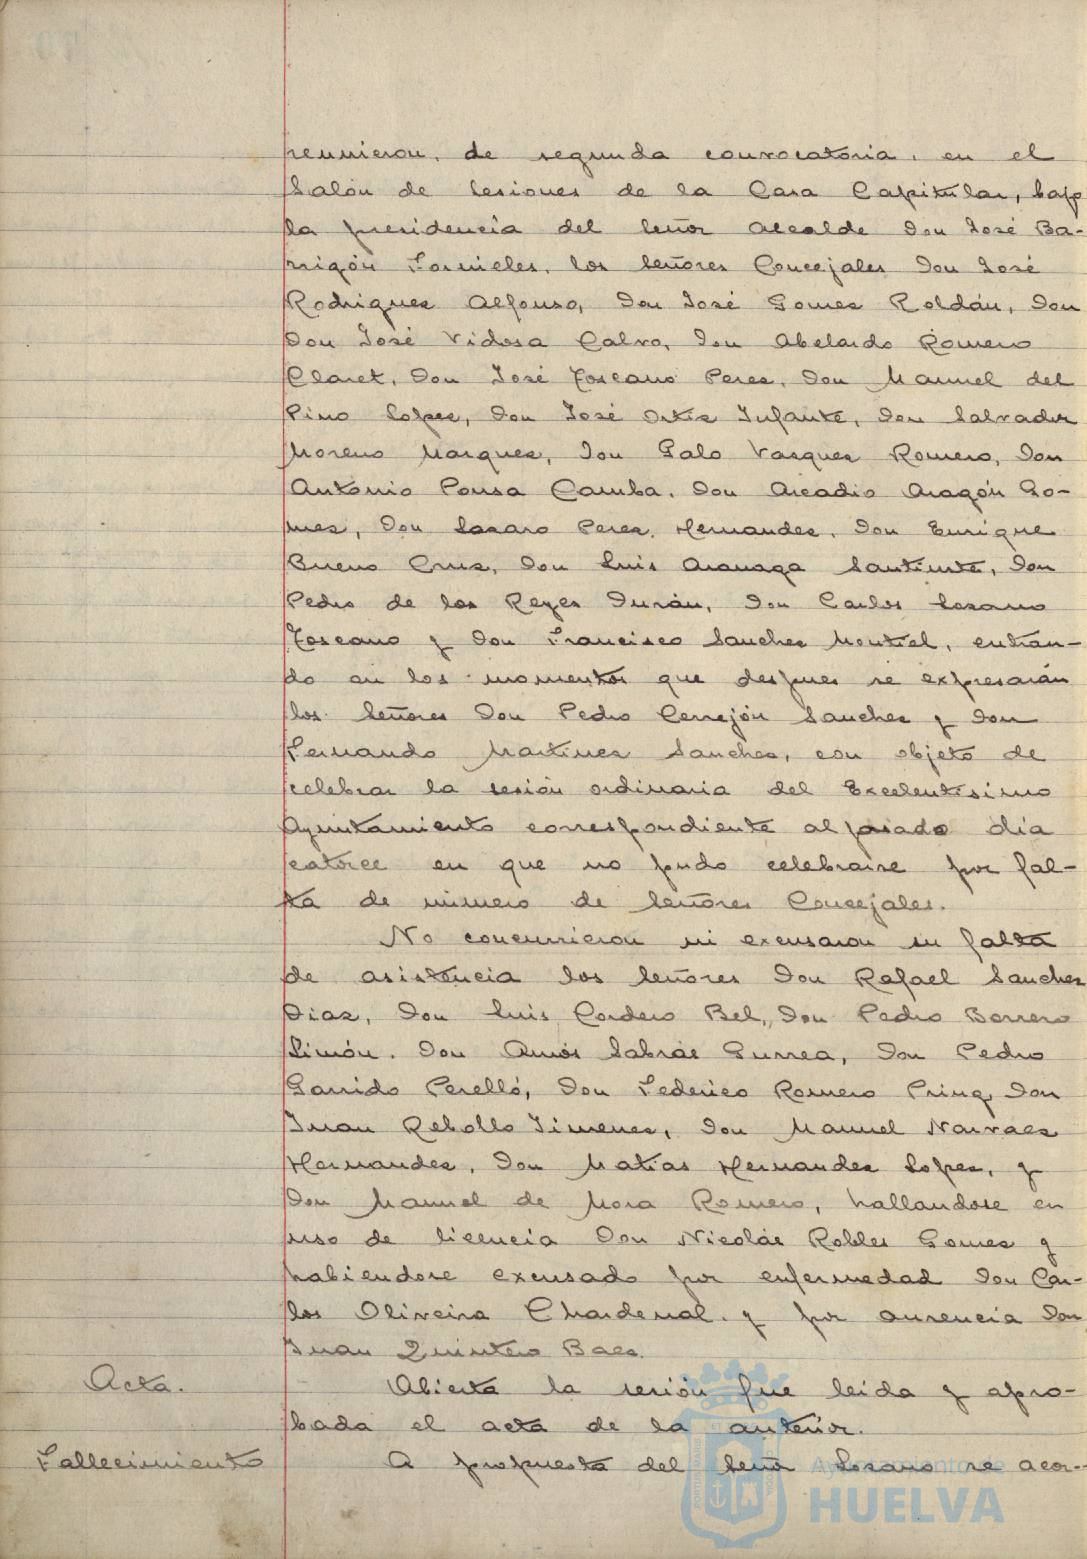 reunieron, de segunda convocatoria, en el
Salón de Sesiones de la Casa Capitular, bajo
la presidencia del Señor Alcalde Don José Ba-
rrigón Fornieles, los Señores Concejales Don José
Rodriguez Alfonso, Don José Gomez Roldán, Don
Don José Vidosa Calvo, Don Abelardo Romero
Claret, Don José Toscano Perez, Don Manuel del
Pino Lopez, Don José Ortiz Infante, Don Salvador
Moreno Marquez, Don Galo Vazquez Romero, Don
Antonio Pousa Camba, Don Arcadio Aragón Go-
mez, Don Lazaro Perez Hernandez, Don Enrique
Bueno Cruz, Don Luis Aranaga Santiuste, Don
Pedro de los Reyes Durán, Don Carlos Lozano
Toscano y Don Francisco Sanchez Montiel, entran-
do en los momentos que despues se expresarán
los Señores Don Pedro Cerrejón Sanchez y Don
Fernando Martinez Sanchez, con objeto de
celebrar la sesión ordinaria del Excelentísimo
Ayuntamiento correspondiente al pasado día
catorce en que no pudo celebrarse por fal-
ta de número de Señores Concejales.
No concurrieron ni excusaron su falta
de asistencia los Señores Don Rafael Sanchez
Diaz, Don Luis Cordero Bel, Don Pedro Borrero
Limón, Don Amós Sabrás Gurrea, Don Pedro
Garrido Perelló, Don Federico Romero Prinq, Don
Juan Rebollo Jimenez, Don Manuel Narvaez
Hernandez, Don Matías Hernandez Lopez, y
Don Manuel de Mora Romero, hallandose en
uso de licencia Don Nicolás Robles Gomez y
habiendose excusado por enfermedad Don Car-
los Oliveira Chardenal y por ausencia Don
Juan Quintero Baez.
Acta. Abierta la sesión fue leida y apro-
bada el acta de la anterior.
Fallecimiento A propuesta del Señor Lozano se acor-
Ayuntamiento de
HUELVA